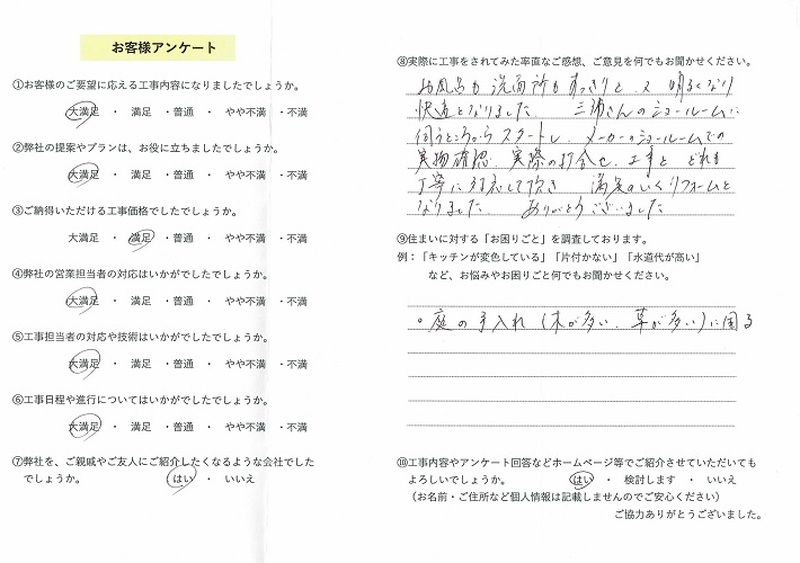 お客様アンケート
①お客様のご要望に応える工事内容になりましたでしょうか。
大満足 ・ 満足 ・普通 ・ やや不満 ・不満
②弊社の提案やプランは、お役に立ちましたでしょうか。
大満足 ・ 満足 ・普通 ・ やや不満 ・不満
③ご納得いただける工事価格でしたでしょうか。
大満足 ・ 満足 ・普通 ・ やや不満 ・不満
④弊社の営業担当者の対応はいかがでしたでしょうか。
大満足 ・ 満足 ・普通 ・ やや不満 ・不満
⑤工事担当者の対応や技術はいかがでしたでしょうか。
大満足 ・ 満足 ・普通 ・ やや不満 ・不満
⑥工事日程や進行についてはいかがでしたでしょうか。
大満足 ・ 満足 ・普通 ・ やや不満 ・不満
⑦弊社を、ご親戚やご友人にご紹介したくなるような会社でした
でしょうか。 はい ・ いいえ
⑧実際に工事をされてみた率直なご感想、ご意見を何でもお聞かせください。
お風呂も 洗面所も すっきりと 又 明るくなり
快適となりました。 三浦さんのショールームに
伺うところから スタートし、メーカーのショールームでの
実物確認、実際の打合せ、工事と どれも
丁寧に対応して頂き 満足のいくリフォームと
なりました。 ありがとうございました
⑨住まいに対する「お困りごと」を調査しております。
例：「キッチンが変色している」「片付かない」「水道代が高い」
など、お悩みやお困りごと何でもお聞かせください。
○庭の手入れ（木が多い、草が多い）に困る
⑩工事内容やアンケート回答などホームページ等でご紹介させていただいても
よろしいでしょうか。 はい ・ 検討します ・ いいえ
（お名前・ご住所など個人情報は記載しませんのでご安心ください）
ご協力ありがとうございました。